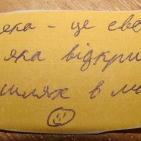 ека - це све
яка відкри
шлях в ми